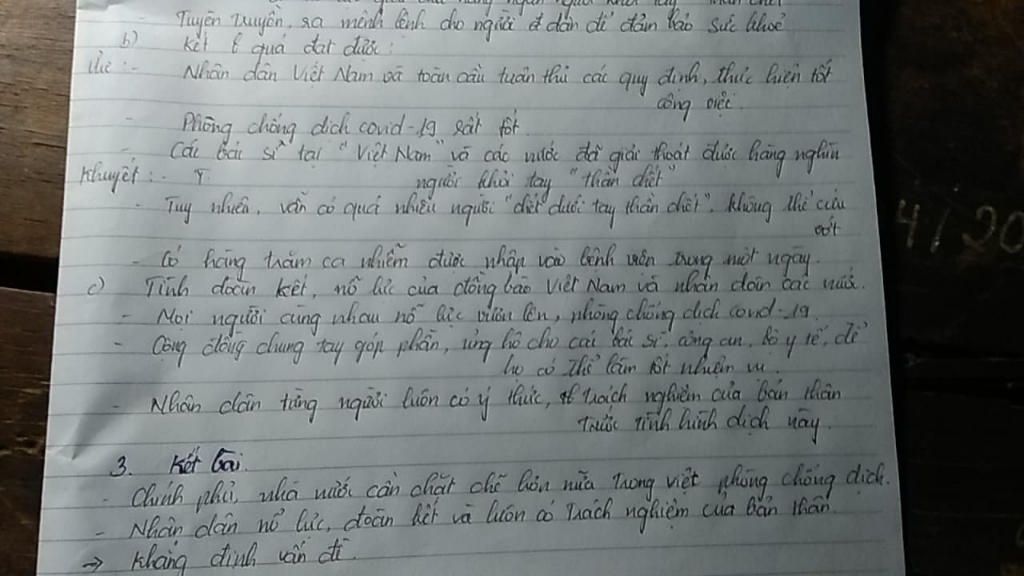 Tuyên truyền, ra mệnh lệnh cho người ở dân để đảm bảo sức khoẻ
b) Kết quả đạt được:
- Nhân dân Việt Nam và toàn cầu tuân thủ các quy định, thực hiện tốt
công việc.
- Phòng chống dịch covid-19 rất tốt.
- Các bác sĩ tại "Việt Nam" và các nước đã giải thoát được hàng nghìn
người khỏi tay "thần chết"
Khuyết: -
- Tuy nhiên, vẫn có quá nhiều người "chết dưới tay thần chết", không thể cứu
vớt
- Có hàng trăm ca nhiễm được nhập vào bệnh viện trong một ngày.
c) Tinh đoàn kết, nỗ lực của đồng bào Việt Nam và nhân dân các nước.
- Mọi người cùng nhau nỗ lực vươn lên, phòng chống dịch covid-19
- Cộng đồng chung tay góp phần, ủng hộ cho các bác sĩ, công an, bộ y tế, để
họ có thể làm tốt nhiệm vụ.
- Nhân dân từng người luôn có ý thức, trách nghiệm của bản thân
trước tình hình dịch này.
3. Kết bài.
- Chính phủ, nhà nước cần chặt chẽ hơn nữa trong việt phòng chống dịch.
- Nhân dân nổ lực, đoàn kết và luôn có trách nghiệm của bản thân.
→ Khẳng định vấn đề.
4/20